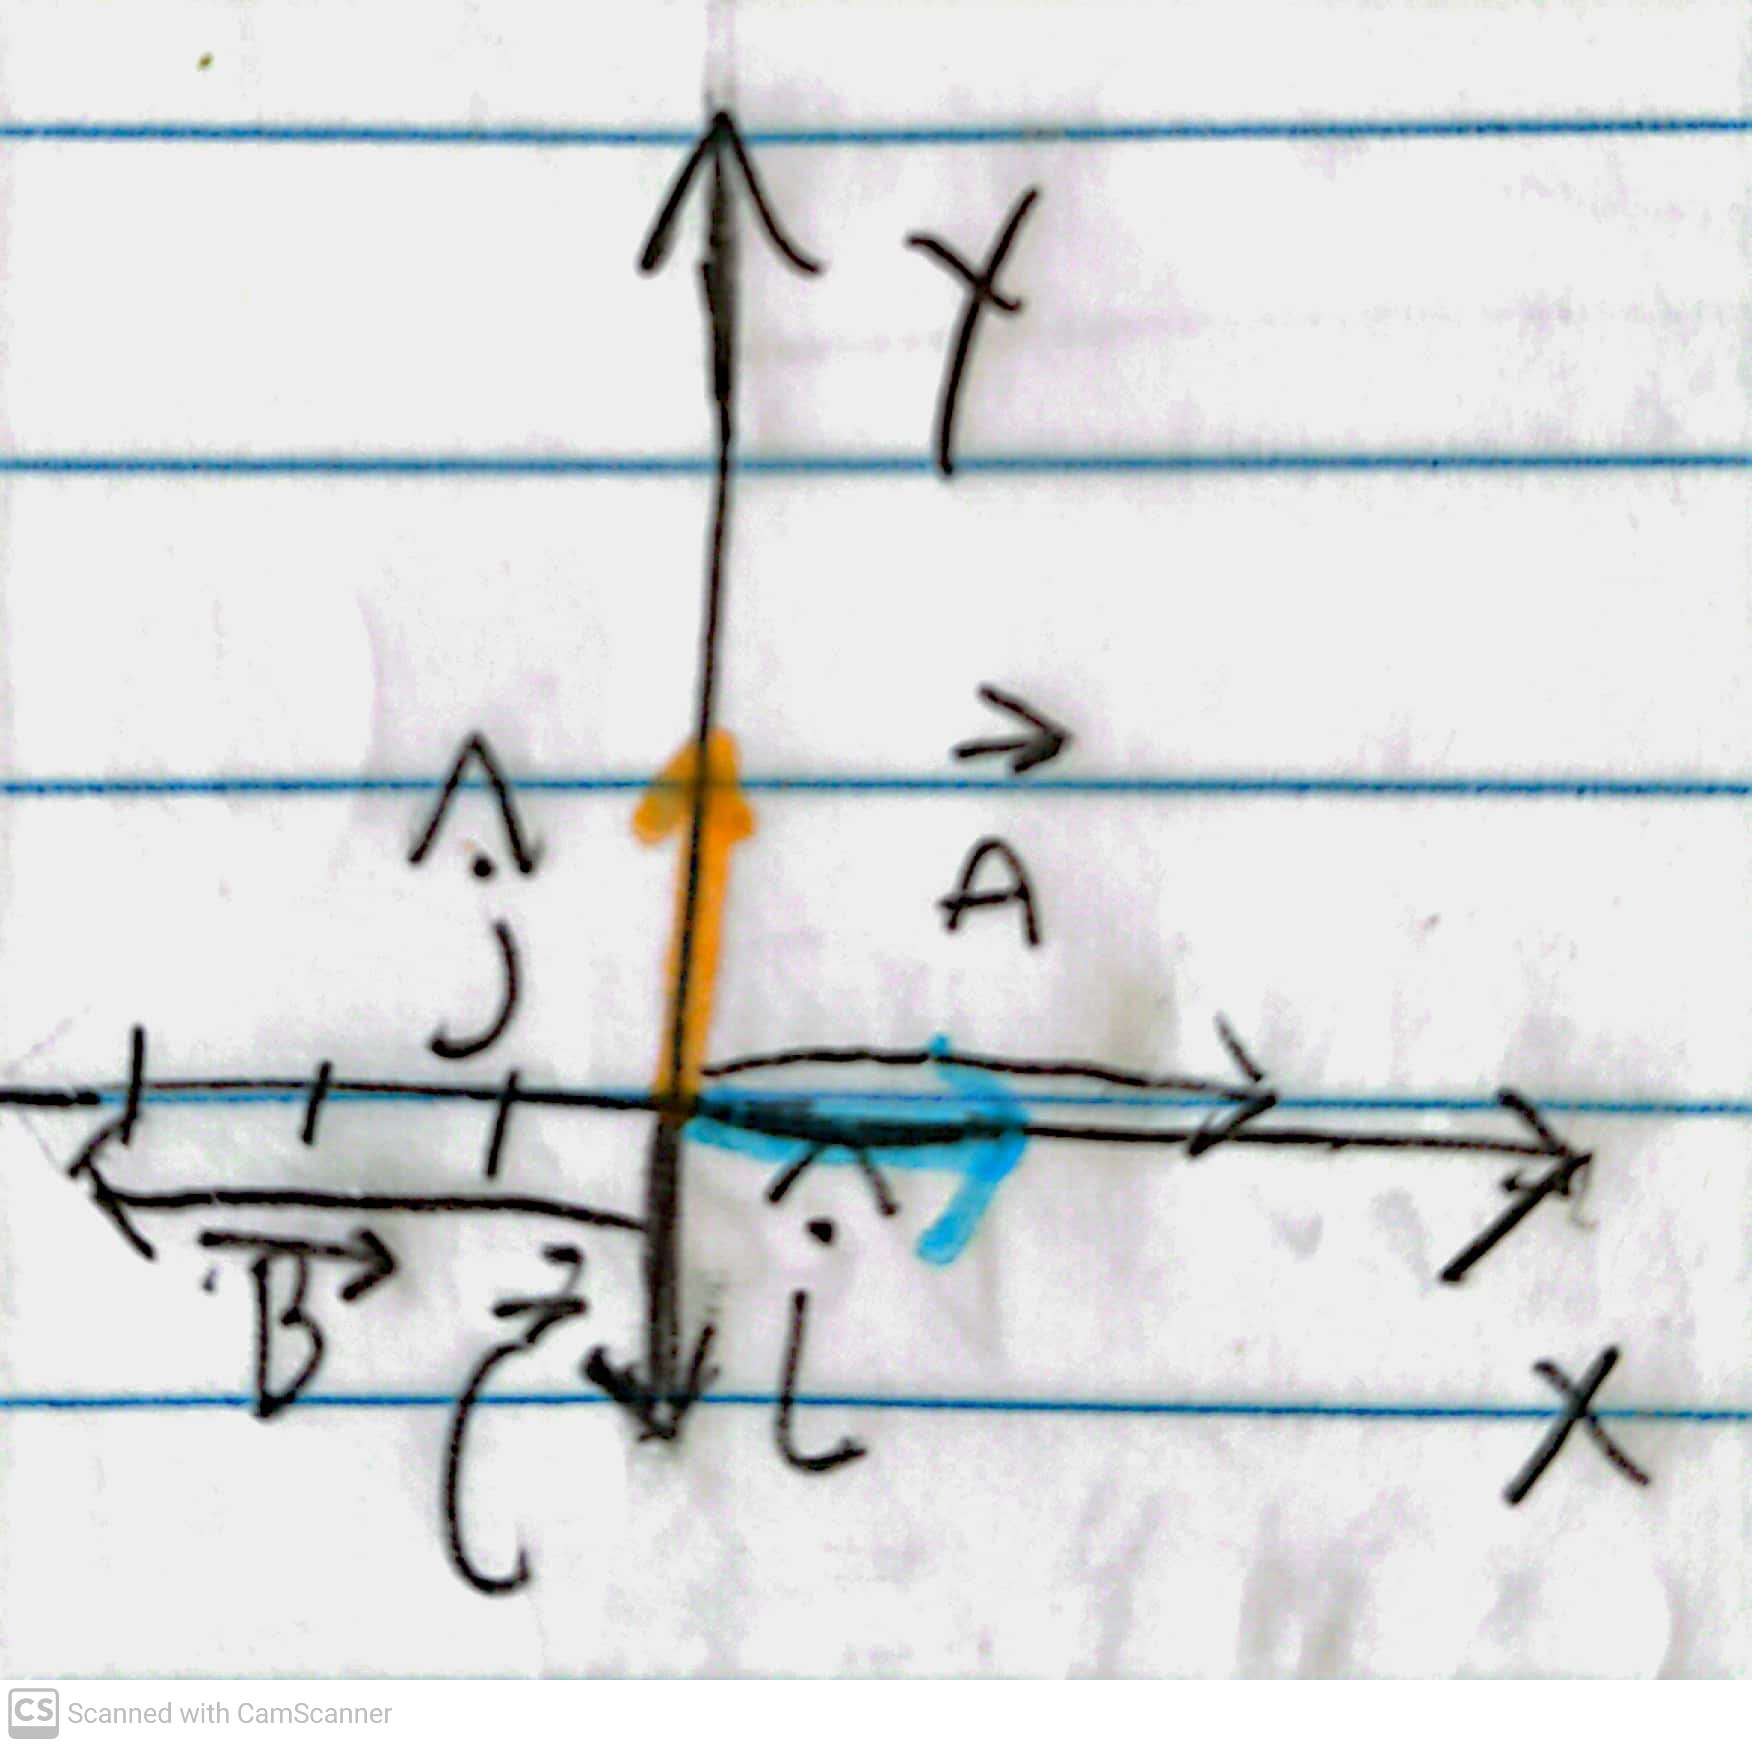 Y
A
ĵ
B
C
î
X
CS Scanned with CamScanner